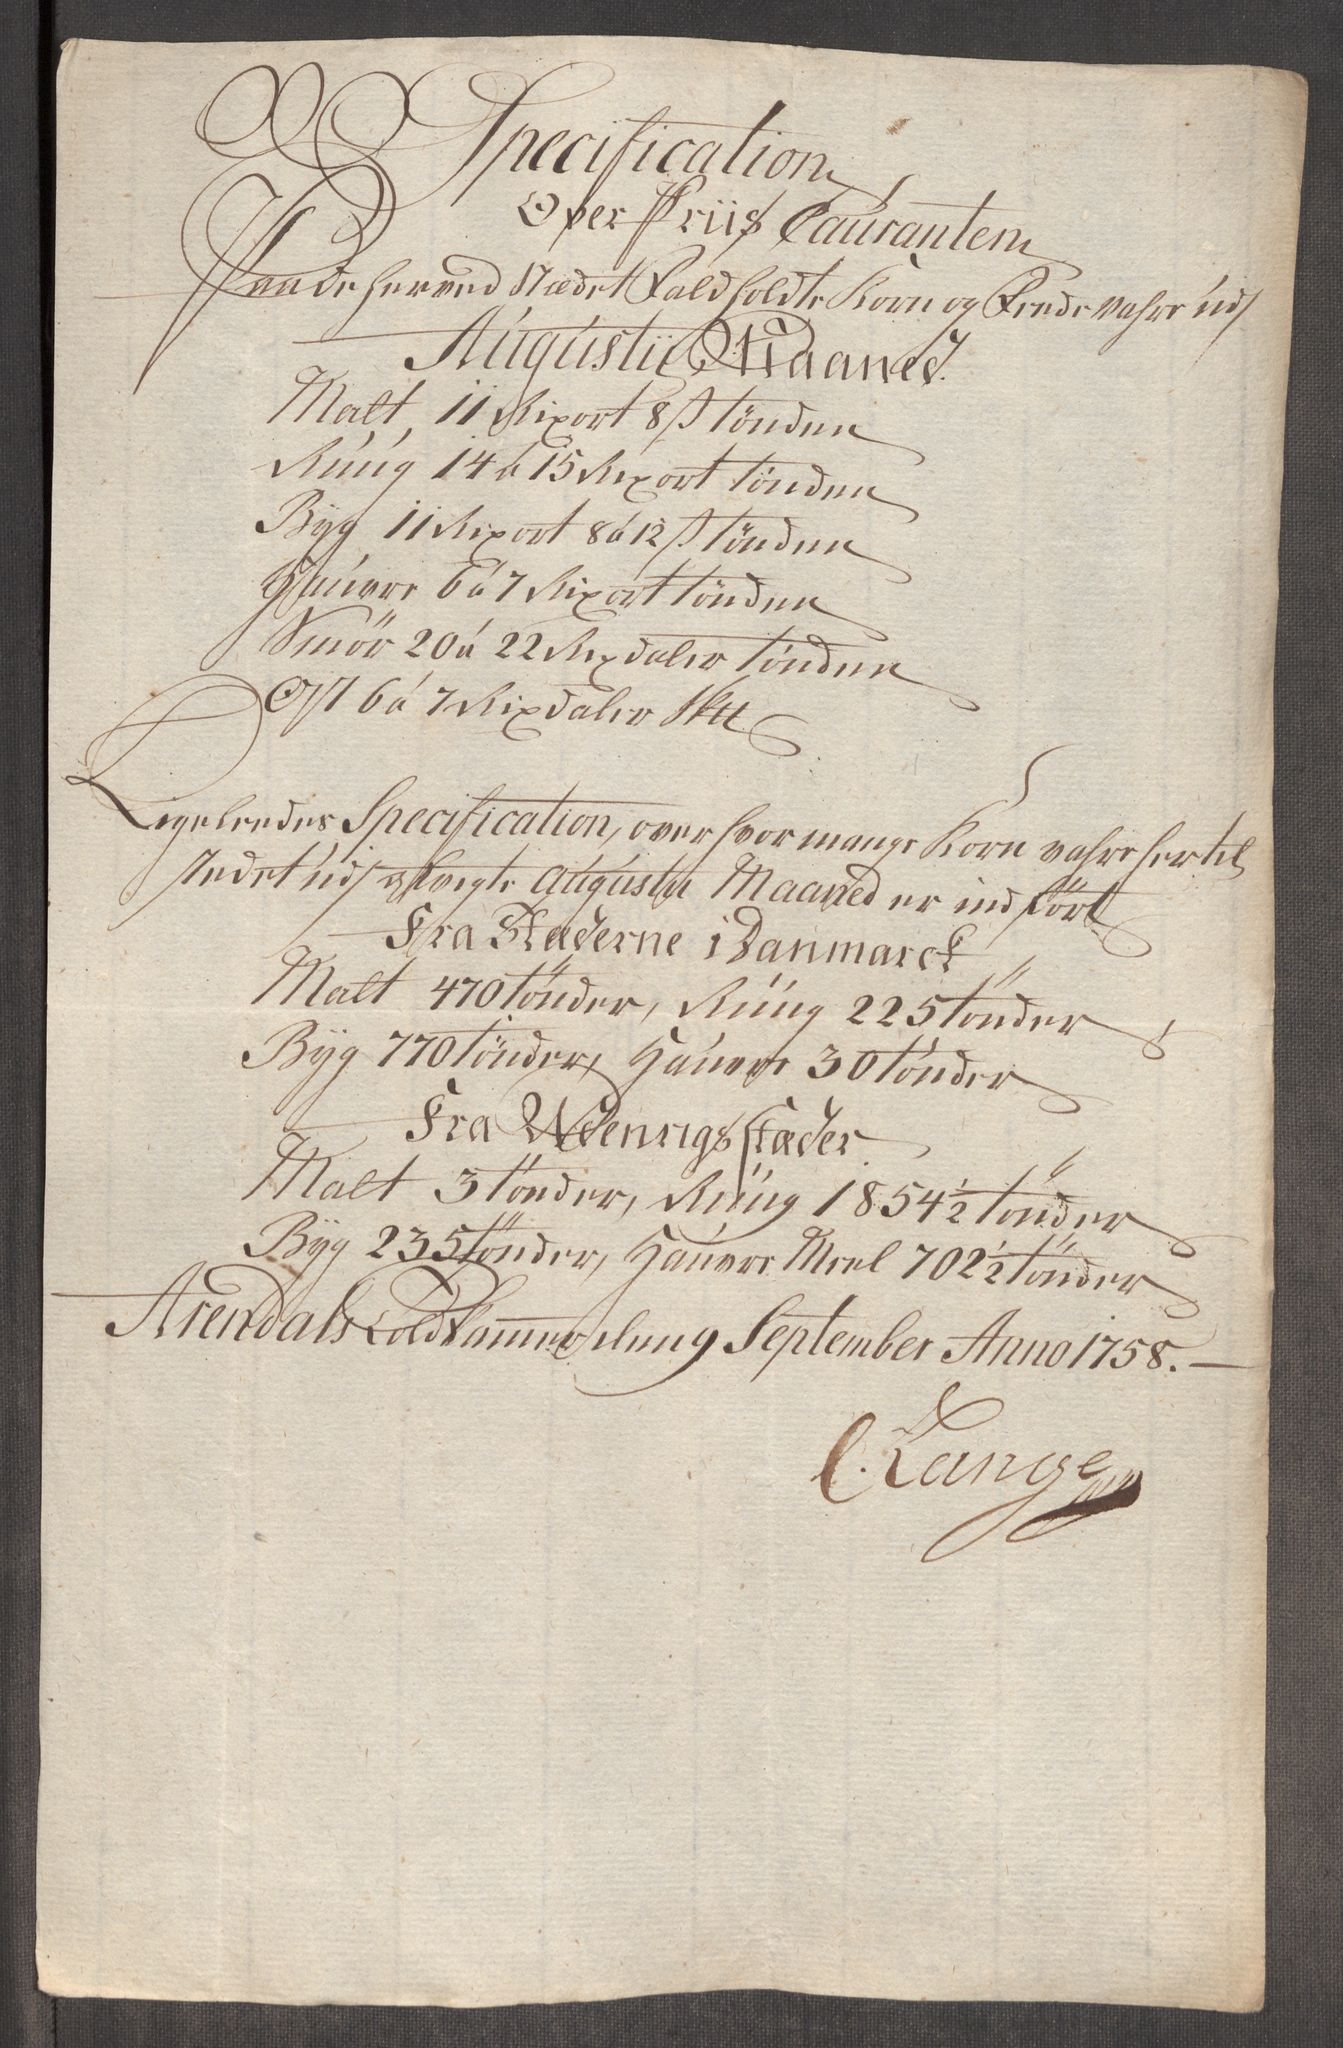 Specification
Over Priis Couranten
Paa de herved Stædet Fald holdte Korn og Feede vahre udj
Augustii Maaned.
Malt, 11 Rixort 8 s tönden
Rúúg 14 á 15 Rixort tönden
Byg 11 Rixort 8 á 12 s tönden
Haúvre 6 á 7 Rixort tönden
Smör 20 á 22 Rixdaler tönden
Ost 6 á 7 Rixdaler Sk℔
Ligeleedes Specification, over hvor mange Korn vahre her til
stedet udj Augustii Maaned er indfört
Fra Stæderne i Danmarck
Malt 470 tönder, Rúúg 225 tönder
Byg 770 tönder, Haúvre 30 tönder
Fra Udenrigs stæder
Malt 3 tönder, Rúúg 1854½ tönder
Byg 235 tönder, Haúvre Meel 702½ tönder
Arendals Toldkammer den 9 September Anno 1758.
C. Lange